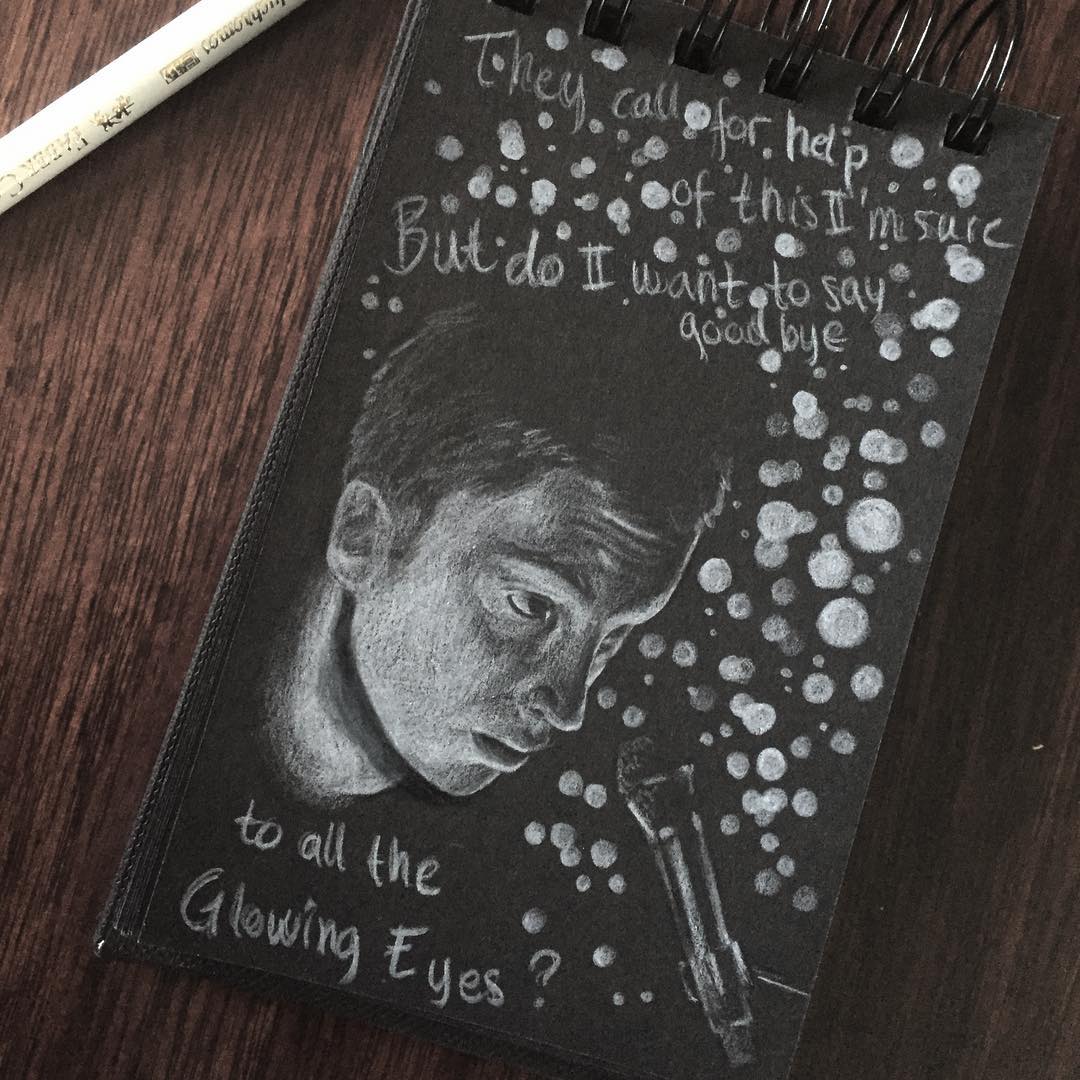 They call for help
of this I'm sure
But do I want to say
good bye
to all the
Glowing Eyes ?
FABER-C